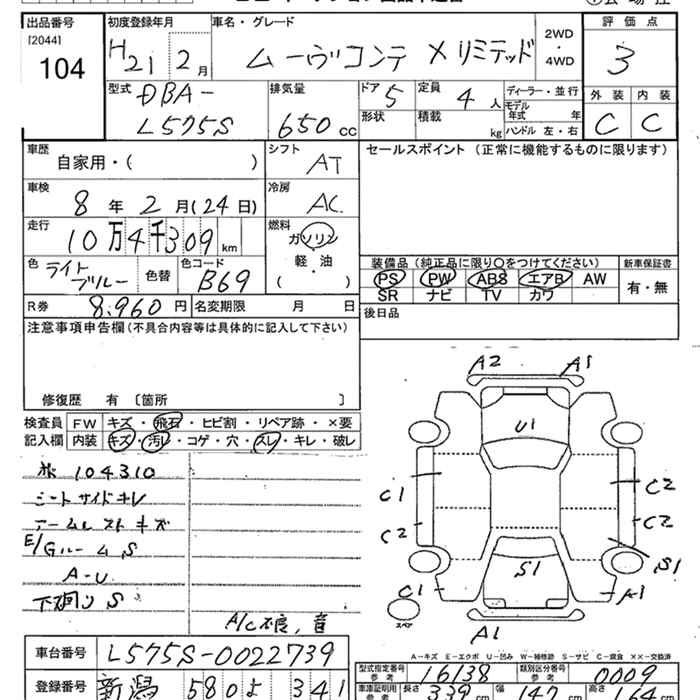 出品番号 初度登録年月 車名・グレード 評価点
[2044]
104 H21 2月 ムーヴコンテ X リミテッド 2WD・4WD 3
型式 排気量 ドア 定員 ディーラー・並行 外装 内装
DBA-L575S 650cc 5 4人 モデル年式 年 C C
形状 積載 kg ハンドル 左・右
車歴 シフト セールスポイント (正常に機能するものに限ります)
自家用・( ) AT
車検 冷房
8年2月(24日) AC
走行 燃料
10万4千309km ガソリン
軽・油
( )
色 色替 色コード 装備品 (純正品に限り〇をつけてください) 新車保証書
ライトブルー B69 PS PW ABS エアB AW 有・無
SR ナビ TV カワ
R券 8,960円 名変期限 月 日 後日品
注意事項申告欄(不具合内容等は具体的に記入して下さい)
修復歴 有 〔箇所 〕
検査員記入欄 FW キズ・飛石・ヒビ割・リペア跡・×要
内装 キズ・汚レ・コゲ・穴・スレ・キレ・破レ
104310
シートサイドキレ
アームレストキズ
E/Gルーム S
A-U
下廻り S
A/C不良,音
A2 A1
U1
C1 C2
C2 C2
S1 S1
C1 A1
スペア
A1
A-キズ E-エクボ U-凹み W-補修跡 S-サビ C-腐食 ××-交換済
車台番号 L575S-0022739
型式指定番号 参考 16138 類別区分番号 参考 0009
登録番号 新潟 580 よ 341
車庫証明用 参考 長さ 339cm 幅 147cm 高さ cm